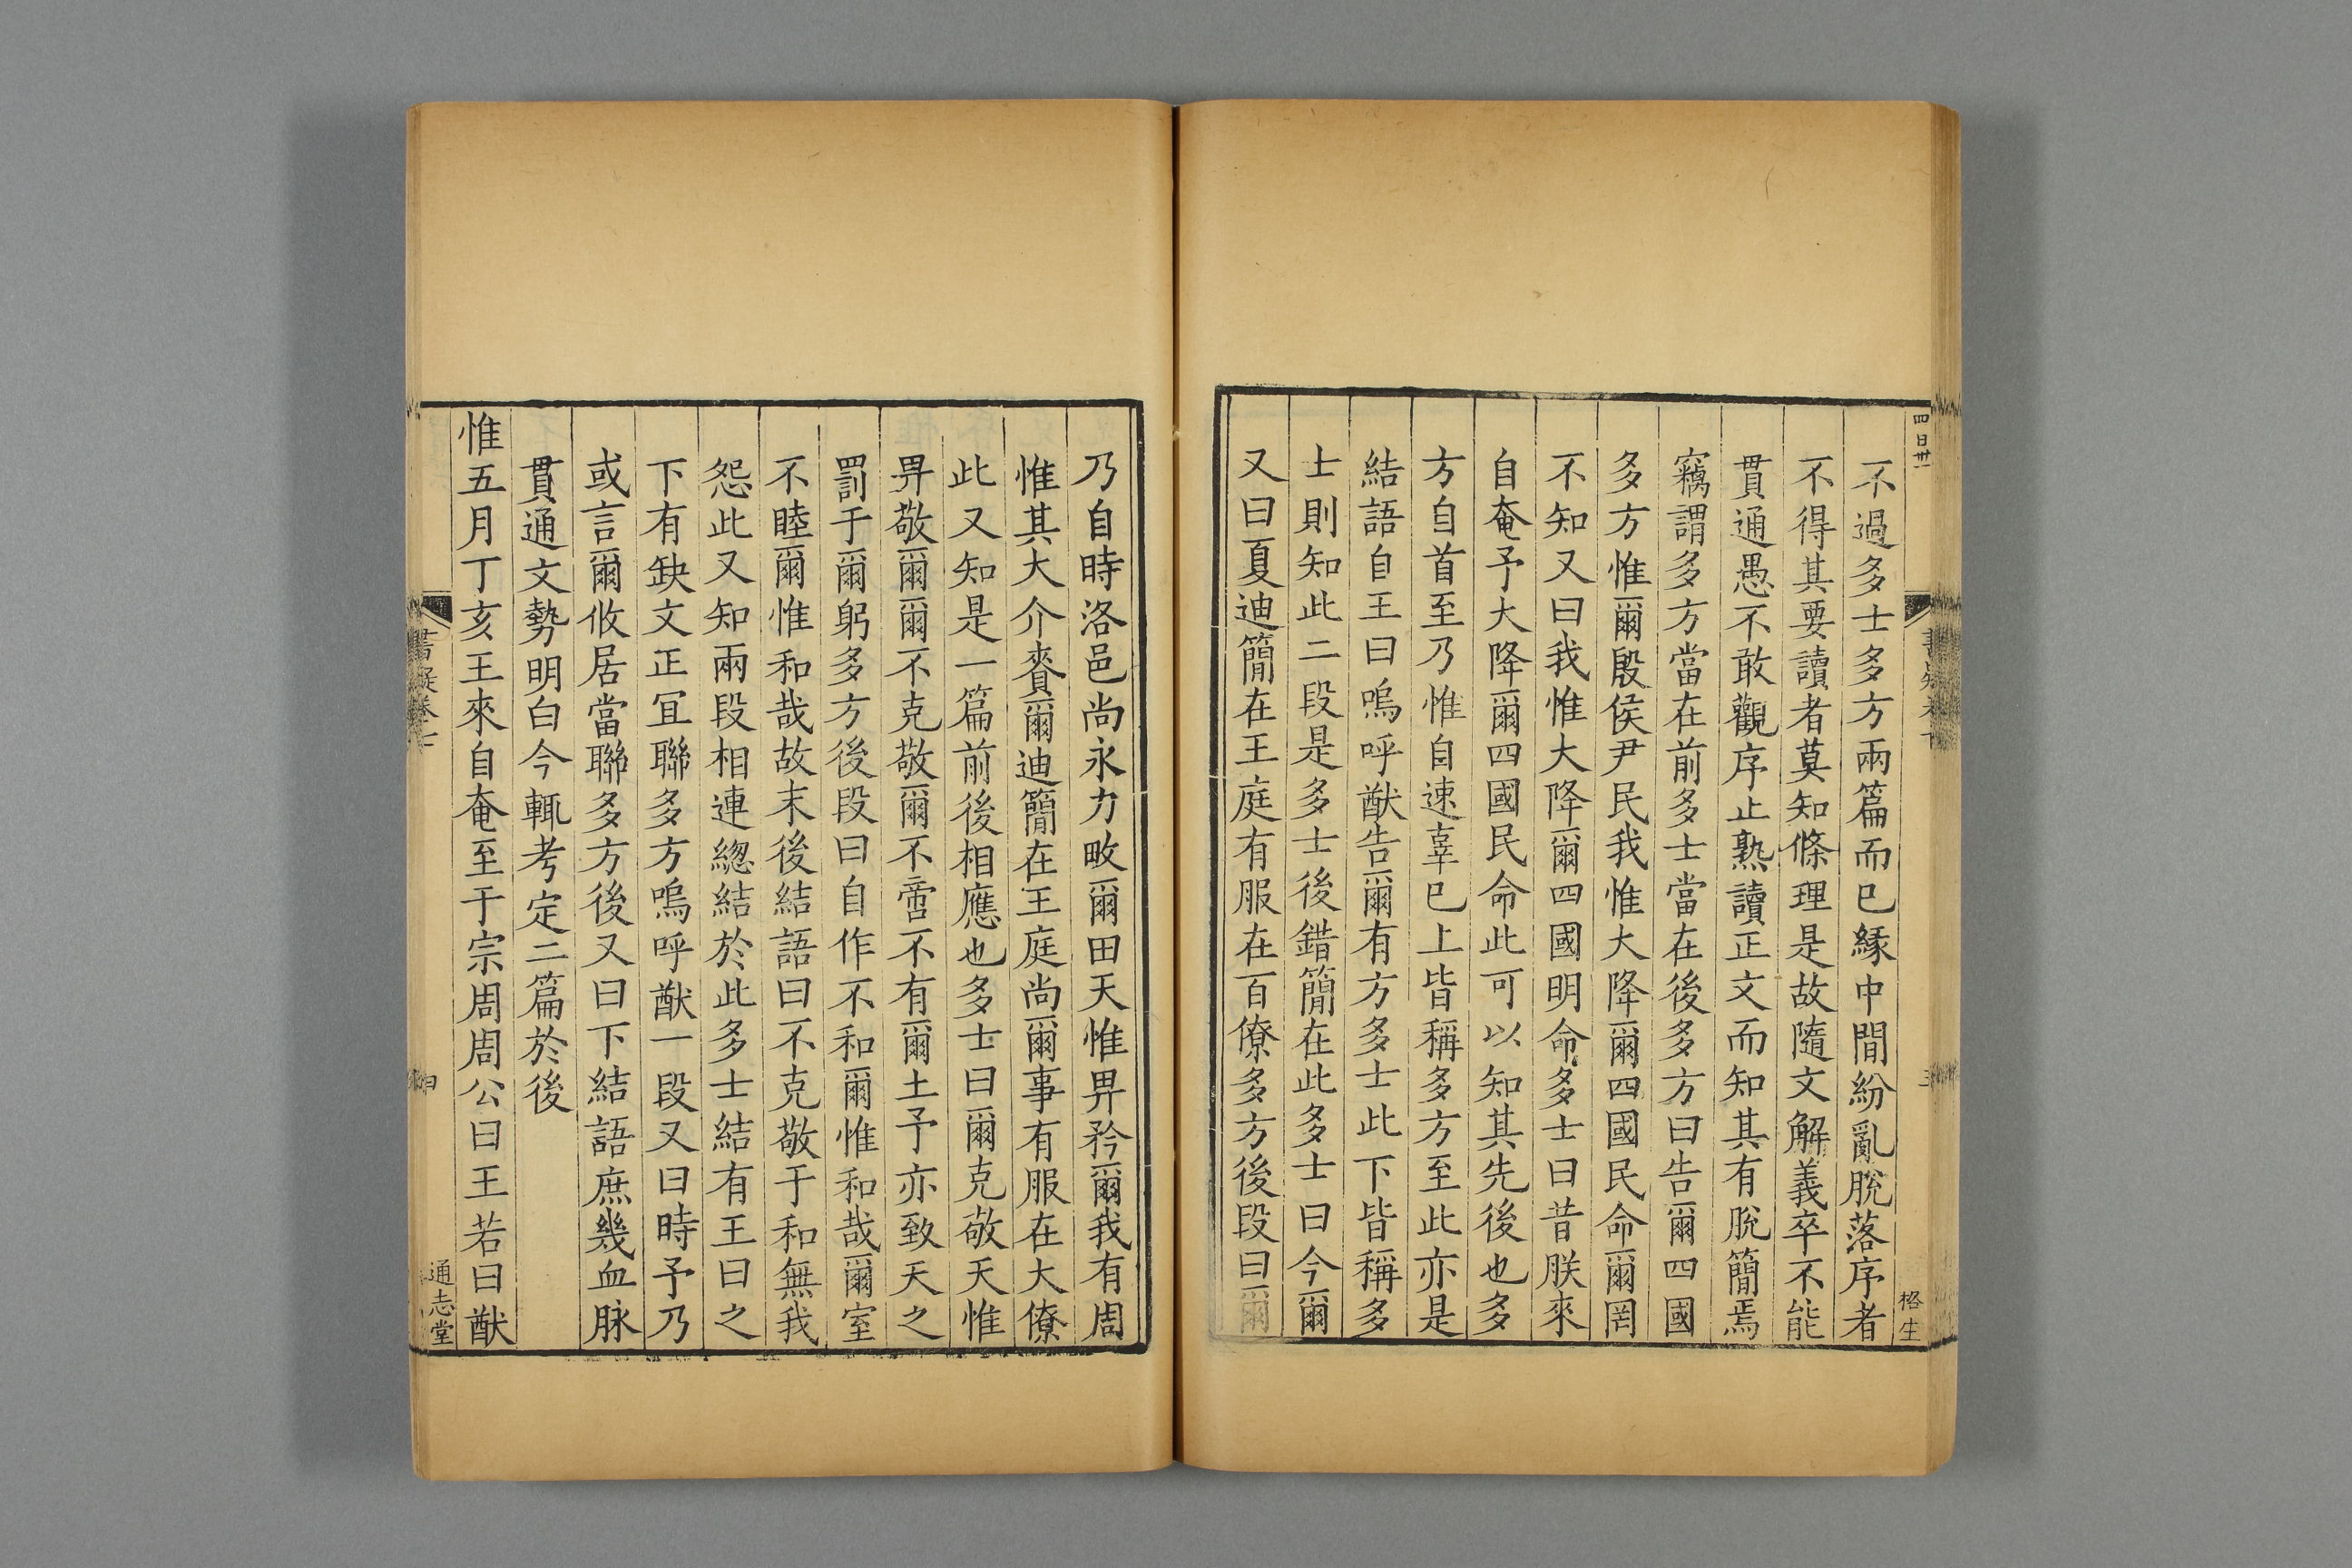 不過多士多方兩篇而已緣中閒紛亂脫落序者
不得其要讀者莫知條理是故隨文解義卒不能
貫通愚不敢觀序止熟讀正文而知其有脫簡焉
竊謂多方當在前多士當在後多方曰告爾四國
多方惟爾殷侯尹民我惟大降爾四國民命爾罔
不知又曰我惟大降爾四國明命多士曰昔朕來
自奄予大降爾四國民命此可以知其先後也多
方自首至乃惟自速辜已上皆稱多方至此亦是
結語自王曰嗚呼猷告爾有方多士此下皆稱多
士則知此二段是多士後錯簡在此多士曰今爾
又曰夏迪簡在王庭有服在百僚多方後段曰爾
格生
乃自時洛邑尚永力畋爾田天惟畀矜爾我有周
惟其大介賚爾迪簡在王庭尚爾事有服在大僚
此又知是一篇前後相應也多士曰爾克敬天惟
畀敬爾爾不克敬爾不啻不有爾土予亦致天之
罰于爾躬多方後段曰自作不和爾惟和哉爾室
不睦爾惟和哉故末後結語曰不克敬于和無我
怨此又知兩段相連緫結於此多士結有王曰之
下有缺文正冝聯多方嗚呼猷一段又曰時予乃
或言爾攸居當聯多方後又曰下結語庶幾血脉
貫通文勢明白今輒考定二篇於後
惟五月丁亥王來自奄至于宗周周公曰王若曰猷
書疑卷七
通志堂